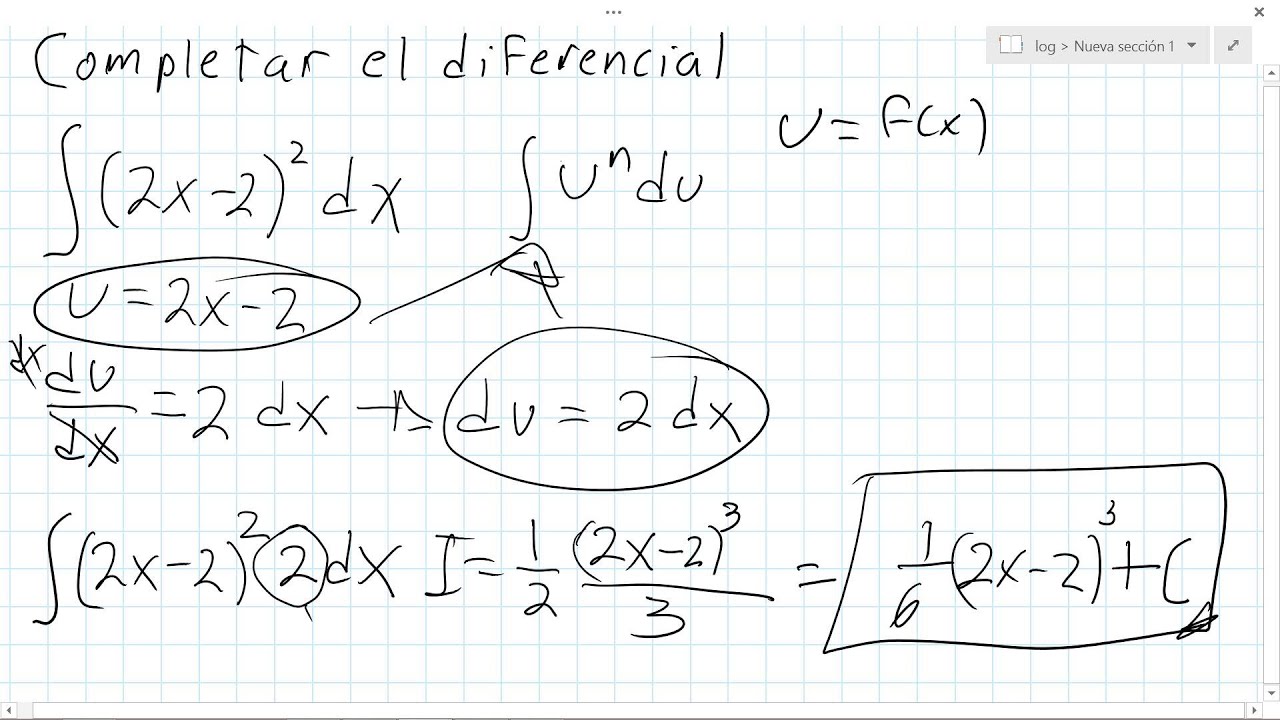 ...
log > Nueva sección 1
Completar el diferencial
u = f(x)
∫(2x-2)² dx ∫uⁿdu
u = 2x-2
dx du/dx = 2 dx → du = 2 dx
∫(2x-2)² (2) dx I = 1/2 (2x-2)³/3 = 1/6 (2x-2)³ + C